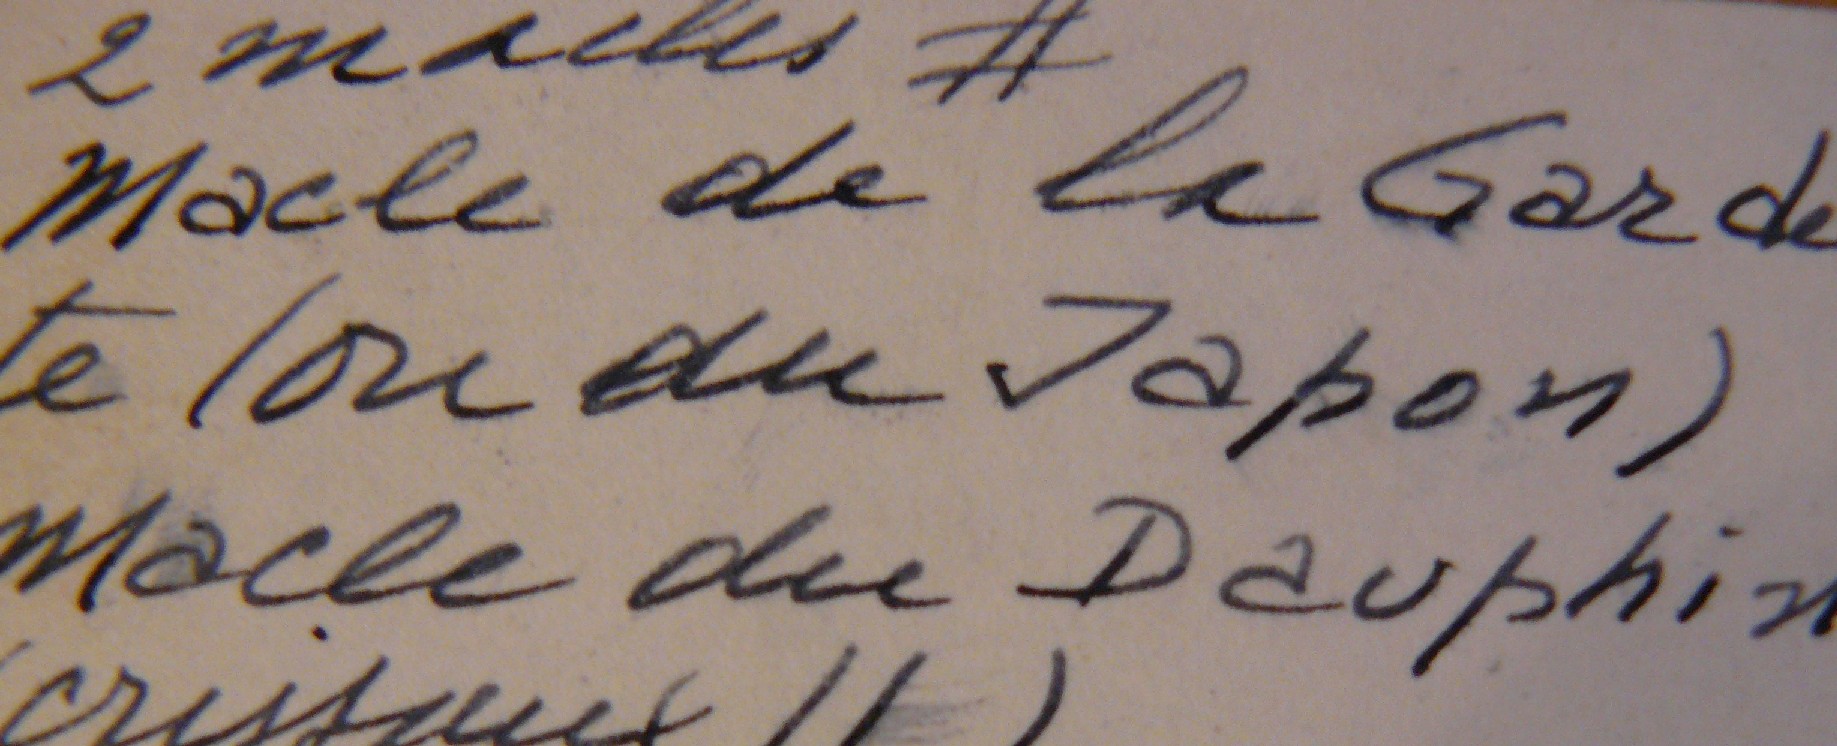 2 macles #
Macle de la Garde
te (ou du Japon)
Macle du Dauphin
(cristaux //)